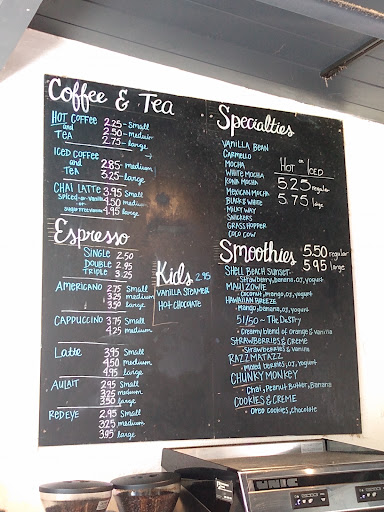 Coffee & Tea
HOT COFFEE and TEA
2.25 - Small
2.50 - medium
2.75 - large
ICED COFFEE and TEA
2.85 - medium
3.25 - large
CHAI LATTE
SPICED or Vanilla or
3.95 Small
4.50 medium
4.95 large
Espresso
SINGLE 2.50
DOUBLE 2.95
TRIPLE 3.25
AMERICANO 2.75 small
3.25 medium
3.50 large
CAPPUCCINO 3.75 small
4.25 medium
Latte 3.95 small
4.50 medium
4.95 large
AULAIT 2.95 small
3.25 medium
3.50 large
REDEYE 2.95 Small
3.25 medium
3.95 large
Kids 2.95
VANILLA STEAMER
HOT-CHOCOLATE
Specialties
VANILLA BEAN
CARMELLO
MOCHA
WHITE MOCHA
KONA MOCHA
MEXICAN MOCHA
BLACK & WHITE
MILKY WAY
SNICKERS
GRASSHOPPER
COCO COW
HOT or ICED
5.25 regular
5.75 large
Smoothies 5.50 regular
5.95 large
SHELL BEACH SUNSET -
Strawberry, banana, OJ, yogurt
MAUI ZOWIE
Coconut, mango, OJ, yogurt
HAWAIIAN BREEZE -
mango, banana, OJ, yogurt
51/50 ~ THE DUSTY
- Creamy blend of orange & vanilla
STRAWBERRIES & CREME
- Strawberries & vanilla
RAZZMATAZZ
- mixed berries, OJ, yogurt
CHUNKY MONKEY
- Chai, Peanut Butter, Banana
COOKIES & CREME
- Oreo cookies, chocolate
UNIC